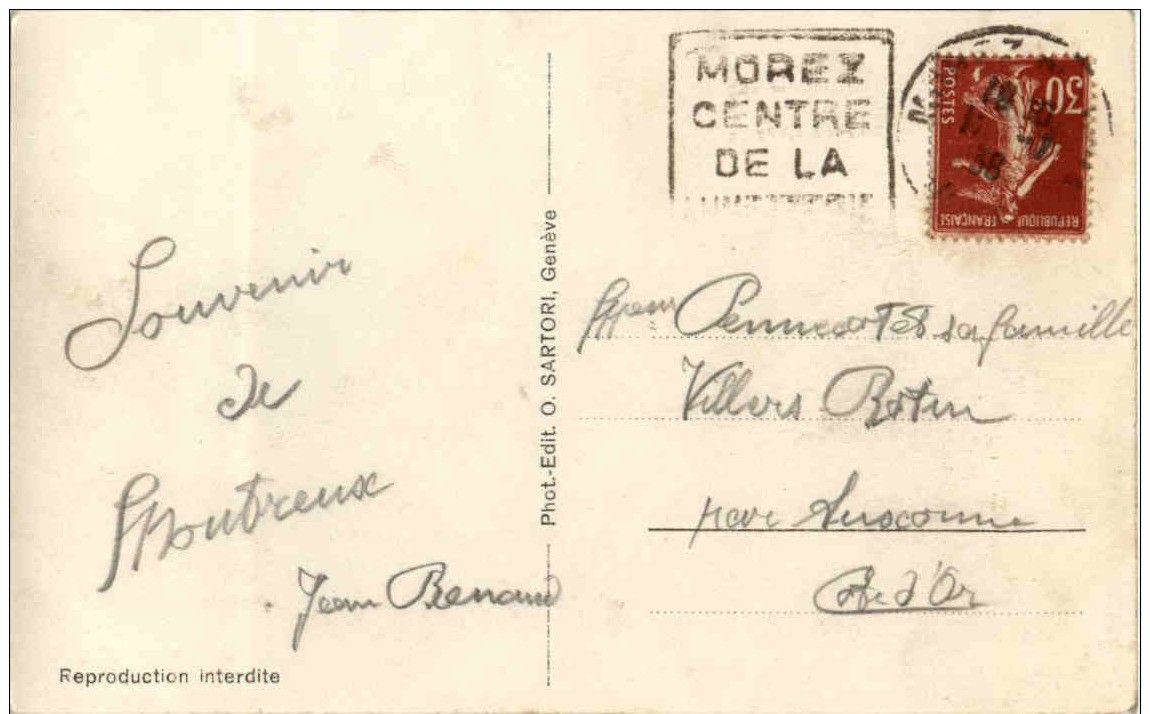 Souvenir
de
Montreux
Jean Renaud
Reproduction interdite
Phot.-Edit. O. SARTORI, Genève
MOREZ
CENTRE
DE LA
LUNETTERIE
30
POSTES
REPUBLIQUE FRANÇAISE
38
et sa famille
Villers Rotin
par Auxonne
Côte d'Or